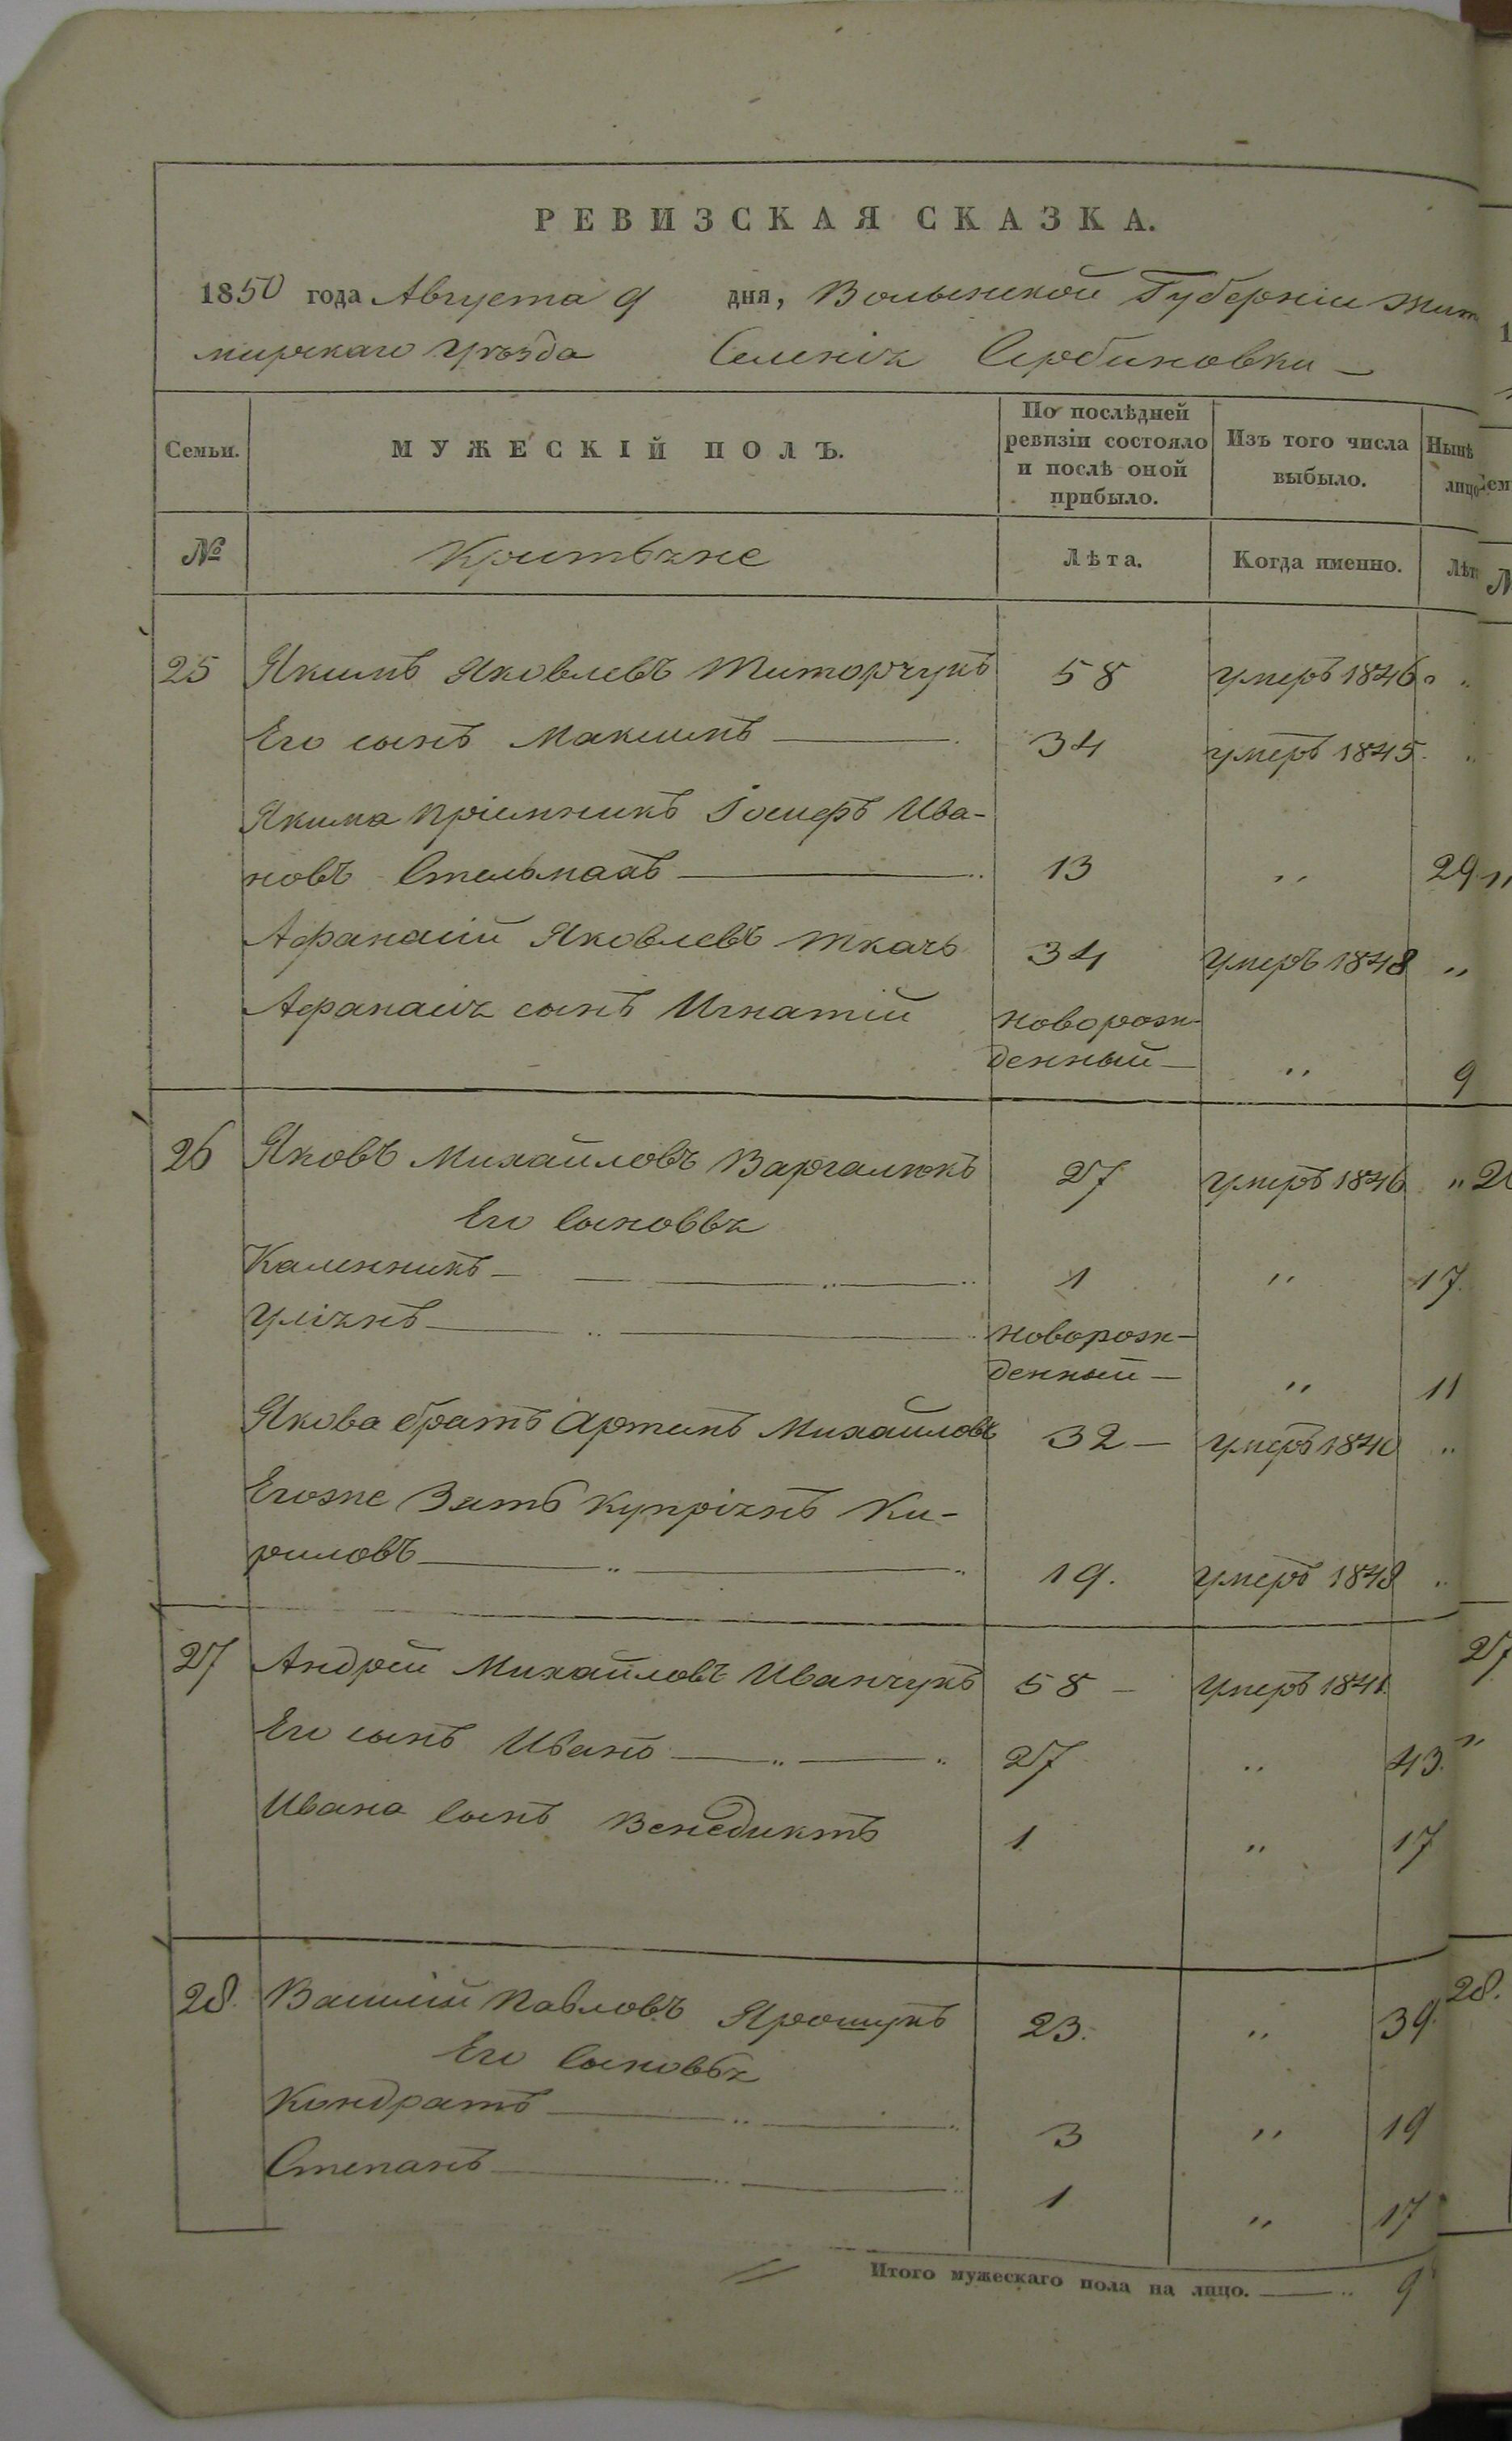 РЕВИЗСКАЯ СКАЗКА.
1850 года Августа 9 дня, Волынской Губерніи Жит
мирскаго Уѣзда Селенія Сербиновки
Семьи. МУЖЕСКІЙ ПОЛЪ. По послѣдней ревизіи состояло и послѣ оной прибыло. Изъ того числа выбыло. Нынѣ лицо
№ Крестьяне Лѣта. Когда именно. Лѣт
25 Якимъ Яковлевъ Титорчукъ 58 умеръ 1846 "
Его сынъ Максимъ 34 умеръ 1845 "
Якима пріемникъ Іосифъ Ива-
новъ Стельмахъ 13 " 29
Афанасій Яковлевъ Ткачъ 34 умеръ 1848 "
Афанасія сынъ Игнатій новорож-
денный " 9
26 Яковъ Михайловъ Варгалюкъ 27 умеръ 1846 "
Его Сыновья
Каленникъ 1 " 17
Уліянъ новорож-
денный " 11
Якова братъ Артемъ Михайловъ 32 умеръ 1840 "
Егоже Зять Купріянъ Ки-
риловъ 19. умеръ 1848 "
27 Андрей Михайловъ Иванчукъ 58 умеръ 1841
Его сынъ Иванъ 27 " 43.
Ивана Сынъ Венедиктъ 1 " 17
28. Василій Павловъ Ярошукъ 23. " 39
Его Сыновья
Кондратъ 3 " 19
Степанъ 1 " 17
Итого мужескаго пола на лицо. 9